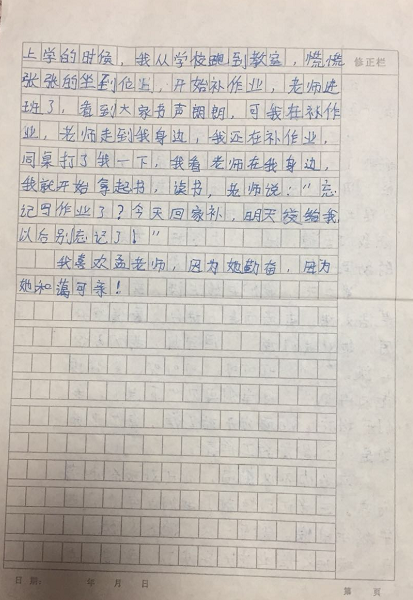 上学的时候，我从学校跑到教室，慌慌
修正栏
张张的坐到位上，开始补作业，老师进
班了，看到大家书声朗朗，可我在补作
业，老师走到我身边，我还在补作业，
同桌打了我一下，我看老师在我身边，
我就开始拿起书，读书，老师说："忘
记写作业了？今天回家补，明天交给我
以后别忘记了！"
我喜欢孟老师，因为她勤奋，因为
她和蔼可亲！
日期： 年 月 日
第 页